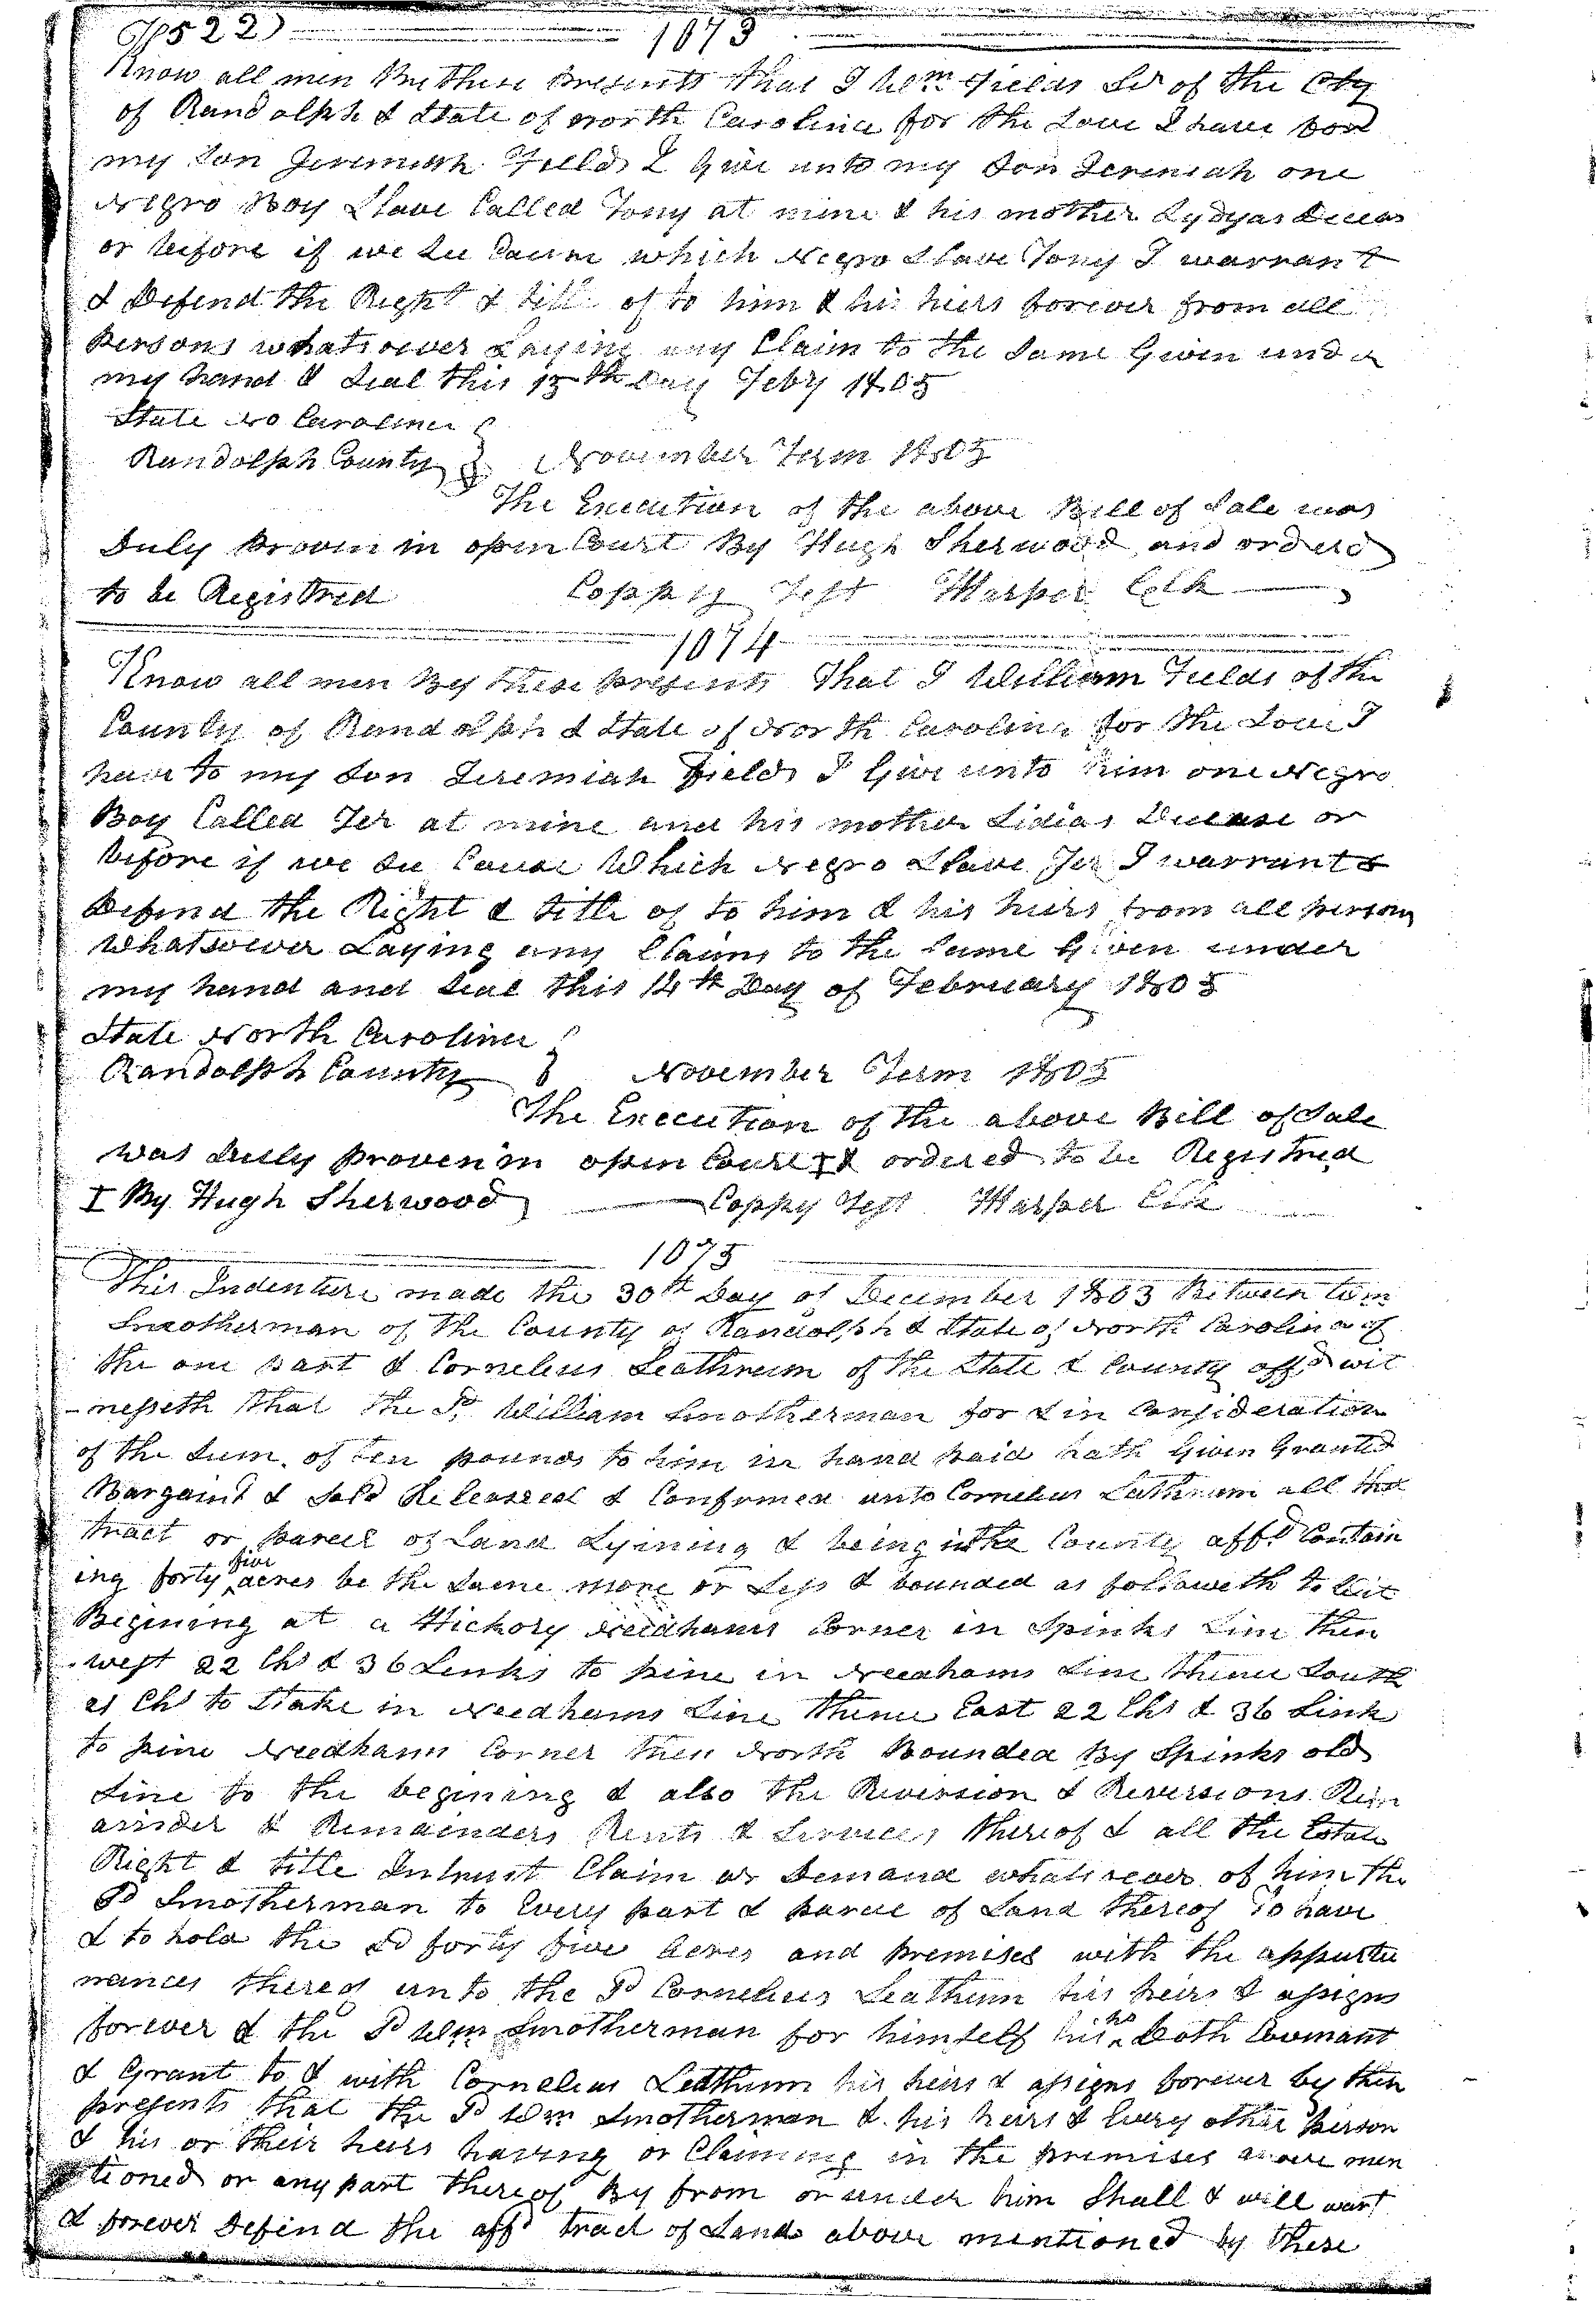 (P522) 1073
Know all men By these presents that I Wm Fields Sr of the Cty
of Randolph & State of North Carolina for the Love I have for
my Son Jeremiah Fields I Give unto my Son Jeremiah one
Negro Boy Slave Called Tony at mine & his mother Lydyas Deceas
or before if we See Cause which Negro Slave Tony I warrant
& Defend the Right & title of to him & his hiers forever from all
Persons whatsoever Laying any Claim to the Same Given under
my hand & Seal this 15th Day Feby 1805
State No Carolina
Randolph County November Term 1805
The Execution of the above Bill of Sale was
Duly Proven in open Court By Hugh Sherwood and orderd
to be Registred Coppy Test Harper Clk
1074
Know all men By these presents That I William Fields of the
County of Randolph & State of North Carolina for the Love I
have to my Son Jeremiah Fields I Give unto him one Negro
Boy Called Jer at mine and his mother Lidias Decease or
before if we See Cause Which Negro Slave Jer I warrant &
Defend the Right & title of to him & his hiers from all persons
whatsoever Laying any Claim to the Same Given under
my hand and Seal this 14th Day of February 1805
State North Carolina
Randolph County November Term 1805
The Execution of the above Bill of Sale
was Duly proven in open Court I & ordered to be Registred
I By Hugh Sherwood Coppy Test Harper Clk
1075
This Indenture made the 30th Day of December 1803 Between Wm
Smotherman of the County of Randolph & State of North Carolina of
the one part & Cornelius Leathrum of the State & County affd wit
-nesseth that the Sd William Smotherman for & in Consideration
of the Sum of ten pounds to him in hand paid hath Given Granted
Bargaind & Sold Releassed & Confirmed unto Cornelius Lathrum all that
tract or parcel of Land Lyining & being in the County affd Contain
ing forty five acres be the Same more or Less & bounded as followeth to wit
Begining at a Hickory Needhams Corner in Spinks Line then
west 22 Chs & 36 Links to pine in Needhams Line thence South
21 Chs to Stake in Needhams Line thence East 22 Chs & 36 Link
to pine Needhams Corner then North Bounded By Spinks old
Line to the begining & also the Reversion & Reversions Rem
ainder & Remainders Rents & Services thereof & all the Estate
Right & title Intrust Claim or Demand whatsoever of him the
Sd Smotherman to Every part & parcel of Land thereof To have
& to hold the Sd forty five acres and premises with the appurte
nances thereof unto the Sd Cornelius Leathrum his heirs & assigns
forever & the Sd Wm Smotherman for himself his hs Doth Covenant
& Grant to & with Cornelius Leathrum his heirs & assigns forever by these
presents that the Sd Wm Smotherman & his heirs & Every other person
& his or their heirs having or Claiming in the premises above men
tioned or any part thereof By from or under him Shall & will wart
& forever Defend the affd tract of Lands above mentioned by these